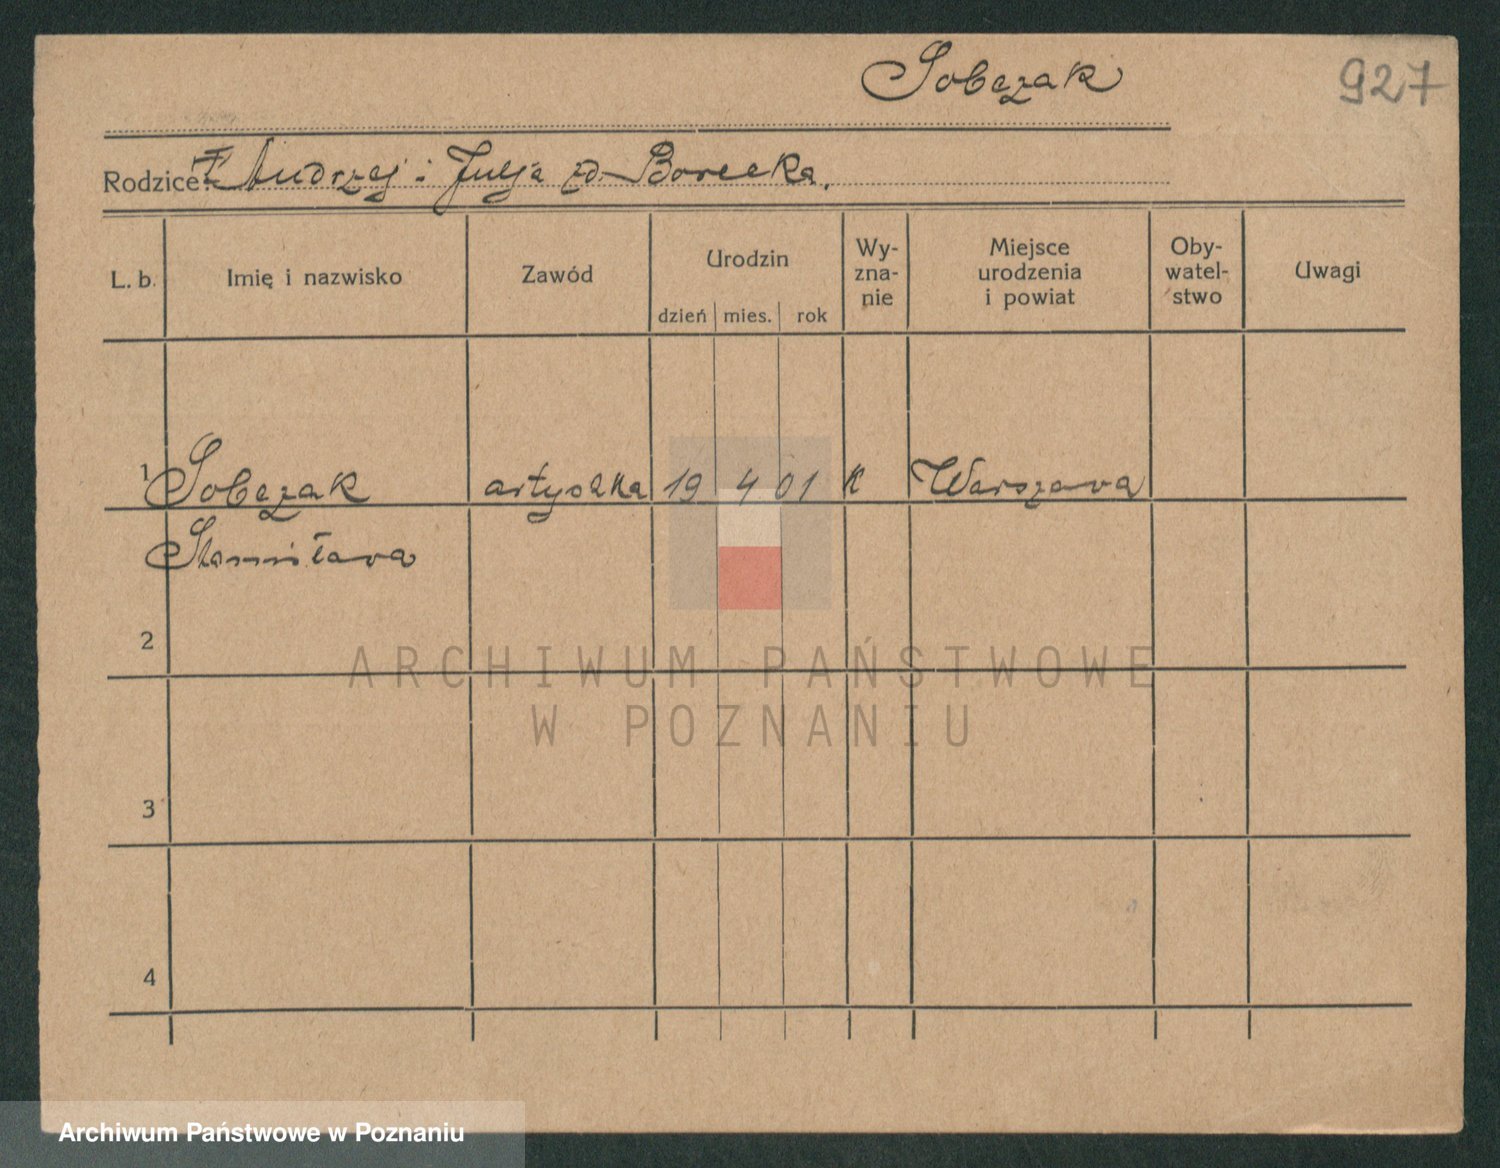 Sobczak
927
Rodzice: Andrzej i Julja zd. Borecka.
L. b. Imię i nazwisko Zawód Urodzin dzień mies. rok Wy- zna- nie Miejsce urodzenia i powiat Oby- watel- stwo Uwagi
1 Sobczak artystka 19 4 01 k Warszawa
Stanisława
2
ARCHIWUM PAŃSTWOWE
W POZNANIU
3
4
Archiwum Państwowe w Poznaniu